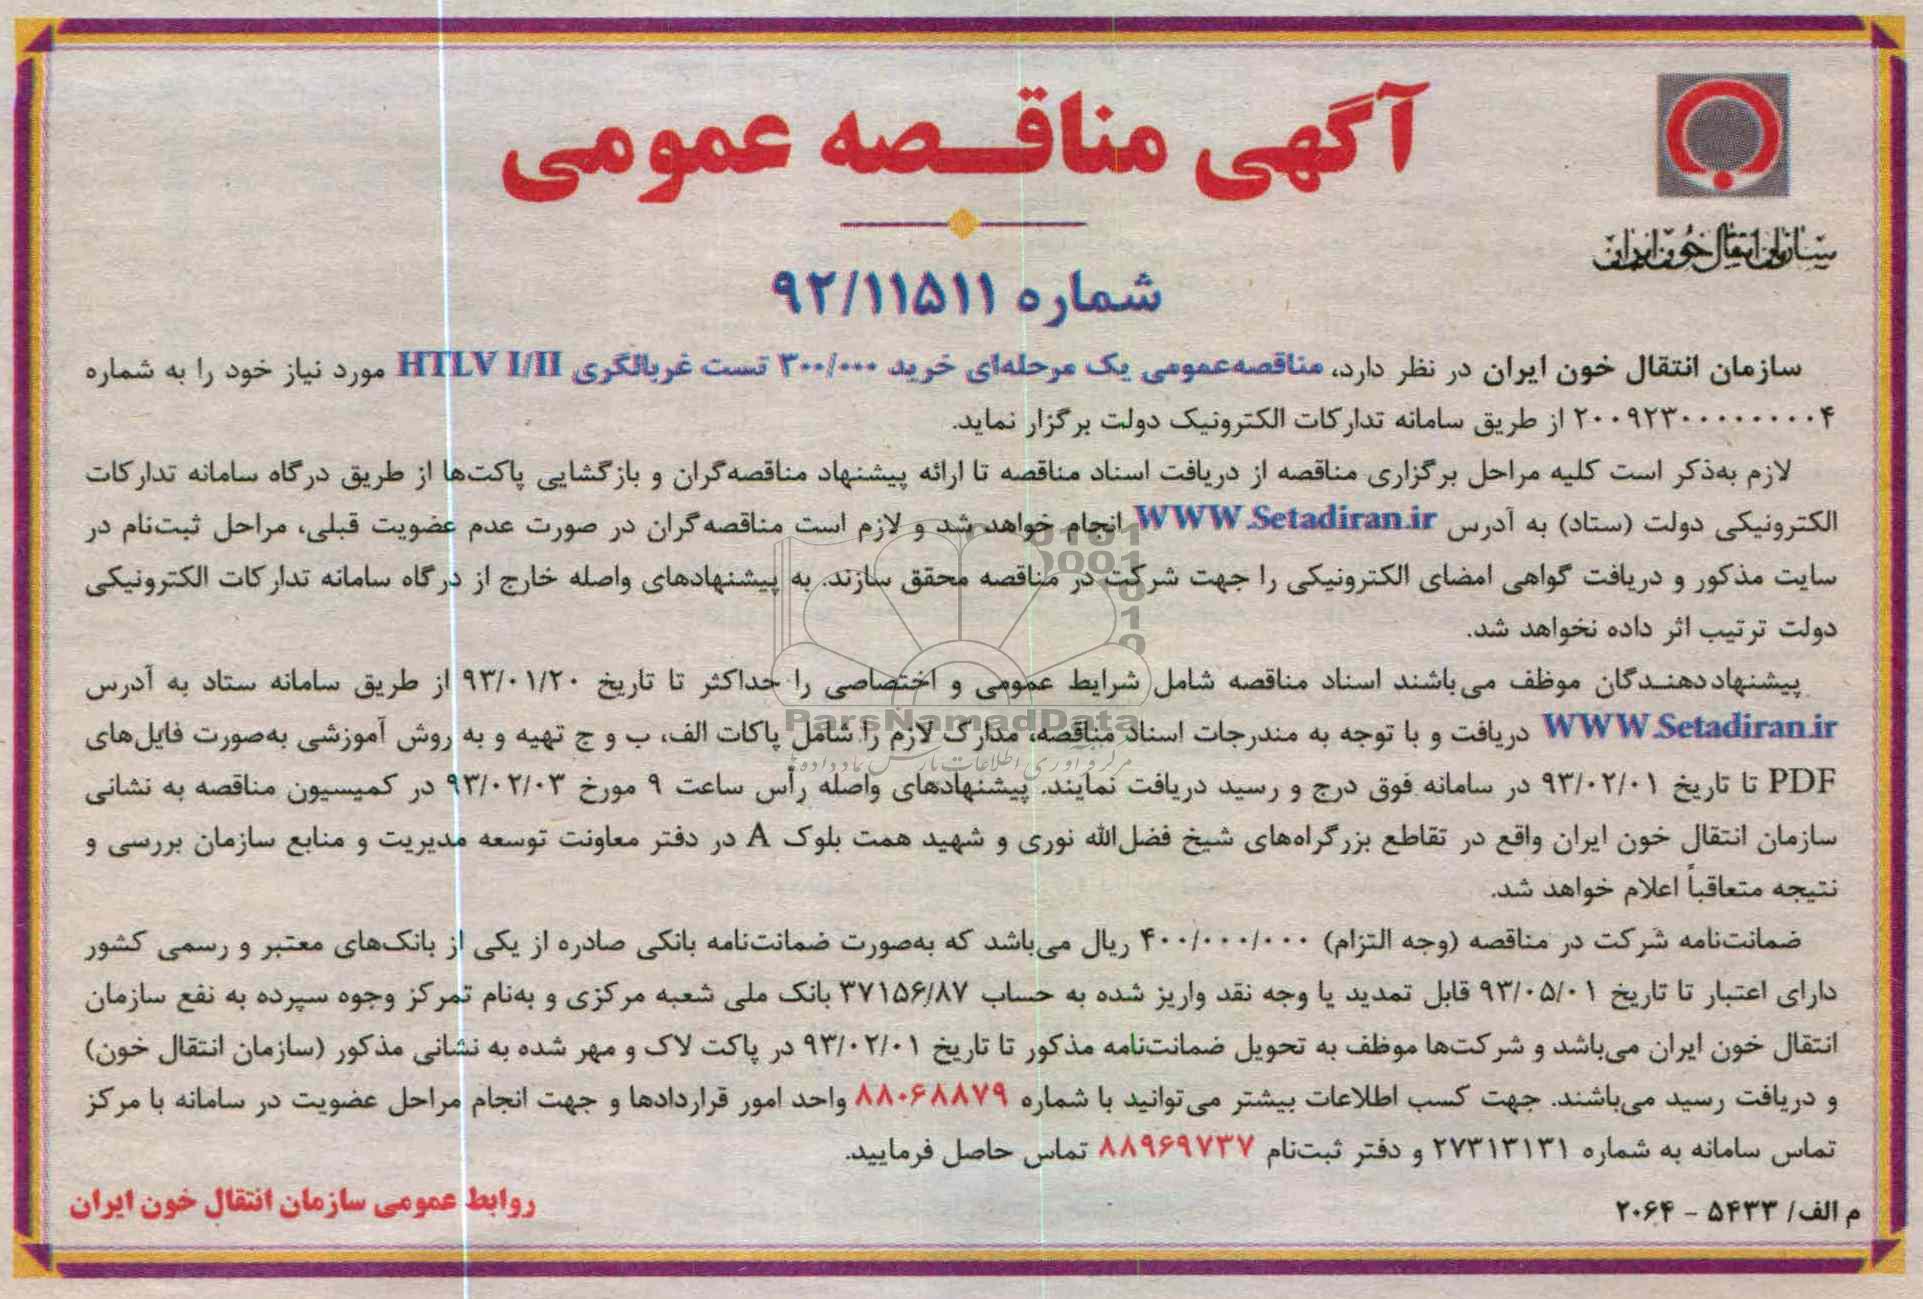 سازمان انتقال خون ایران
آگهی مناقصه عمومی
شماره ۹۲/۱۱۵۱۱
سازمان انتقال خون ایران در نظر دارد، مناقصه‌عمومی یک مرحله‌ای خرید ۳۰۰/۰۰۰ تست غربالگری HTLV I/II مورد نیاز خود را به شماره
۲۰۰۹۲۳۰۰۰۰۰۰۰۰۰۴ از طریق سامانه تدارکات الکترونیک دولت برگزار نماید.
لازم به‌ذکر است کلیه مراحل برگزاری مناقصه از دریافت اسناد مناقصه تا ارائه پیشنهاد مناقصه‌گران و بازگشایی پاکت‌ها از طریق درگاه سامانه تدارکات
الکترونیکی دولت (ستاد) به آدرس WWW.Setadiran.ir انجام خواهد شد و لازم است مناقصه‌گران در صورت عدم عضویت قبلی، مراحل ثبت‌نام در
سایت مذکور و دریافت گواهی امضای الکترونیکی را جهت شرکت در مناقصه محقق سازند. به پیشنهادهای واصله خارج از درگاه سامانه تدارکات الکترونیکی
دولت ترتیب اثر داده نخواهد شد.
پیشنهاددهندگان موظف می‌باشند اسناد مناقصه شامل شرایط عمومی و اختصاصی را حداکثر تا تاریخ ۹۳/۰۱/۲۰ از طریق سامانه ستاد به آدرس
WWW.Setadiran.ir دریافت و با توجه به مندرجات اسناد مناقصه، مدارک لازم را شامل پاکات الف، ب و ج تهیه و به روش آموزشی به‌صورت فایل‌های
PDF تا تاریخ ۹۳/۰۲/۰۱ در سامانه فوق درج و رسید دریافت نمایند. پیشنهادهای واصله رأس ساعت ۹ مورخ ۹۳/۰۲/۰۳ در کمیسیون مناقصه به نشانی
سازمان انتقال خون ایران واقع در تقاطع بزرگراه‌های شیخ فضل‌الله نوری و شهید همت بلوک A در دفتر معاونت توسعه مدیریت و منابع سازمان بررسی و
نتیجه متعاقباً اعلام خواهد شد.
ضمانت‌نامه شرکت در مناقصه (وجه التزام) ۴۰۰/۰۰۰/۰۰۰ ریال می‌باشد که به‌صورت ضمانت‌نامه بانکی صادره از یکی از بانک‌های معتبر و رسمی کشور
دارای اعتبار تا تاریخ ۹۳/۰۵/۰۱ قابل تمدید یا وجه نقد واریز شده به حساب ۳۷۱۵۶/۸۷ بانک ملی شعبه مرکزی و به‌نام تمرکز وجوه سپرده به نفع سازمان
انتقال خون ایران می‌باشد و شرکت‌ها موظف به تحویل ضمانت‌نامه مذکور تا تاریخ ۹۳/۰۲/۰۱ در پاکت لاک و مهر شده به نشانی مذکور (سازمان انتقال خون)
و دریافت رسید می‌باشند. جهت کسب اطلاعات بیشتر می‌توانید با شماره ۸۸۰۶۸۸۷۹ واحد امور قراردادها و جهت انجام مراحل عضویت در سامانه با مرکز
تماس سامانه به شماره ۲۷۳۱۳۱۳۱ و دفتر ثبت‌نام ۸۸۹۶۹۷۳۷ تماس حاصل فرمایید.
م الف/ ۵۴۳۳ - ۲۰۶۴
روابط عمومی سازمان انتقال خون ایران
ParsNamadData